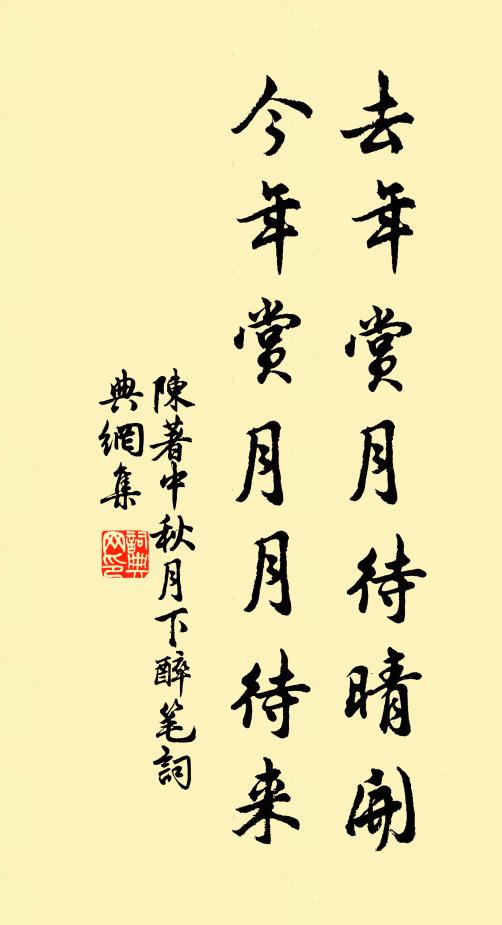 去年賞月待晴開
今年賞月月待来
陳著中秋月下醉笔詞
典網集
詞典
网印